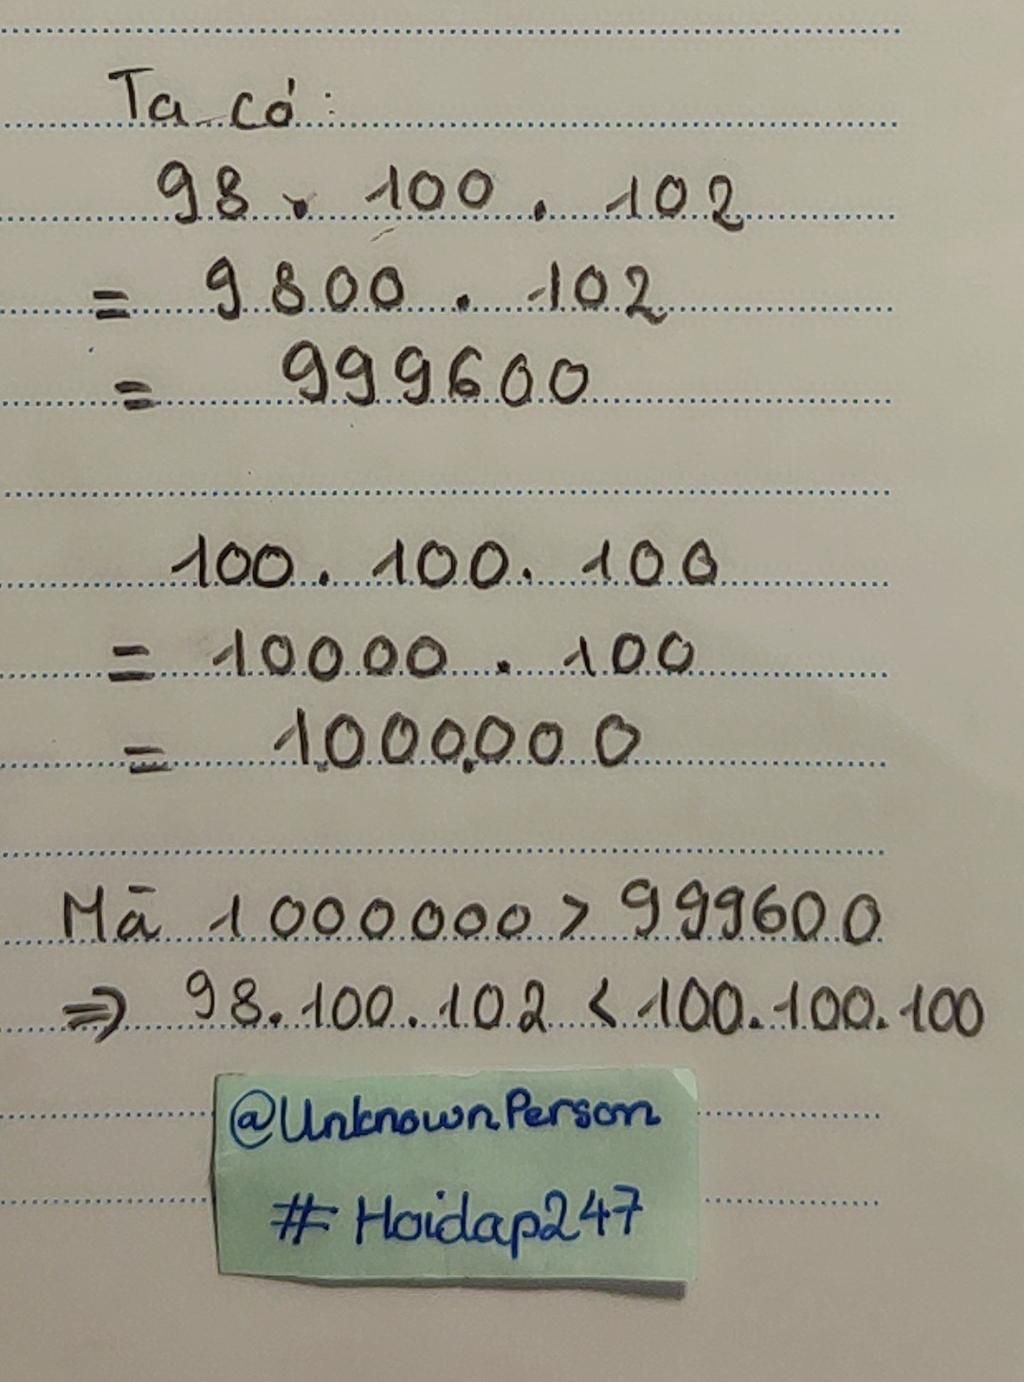 Ta có:
98 . 100 . 102
= 9800 . 102
= 999600
100. 100. 100
= 10000 . 100
= 1.000.000
Mā 1000000 > 999600
⇒ 98.100.102 < 100.100.100
@UnknownPerson
# Hoidap247